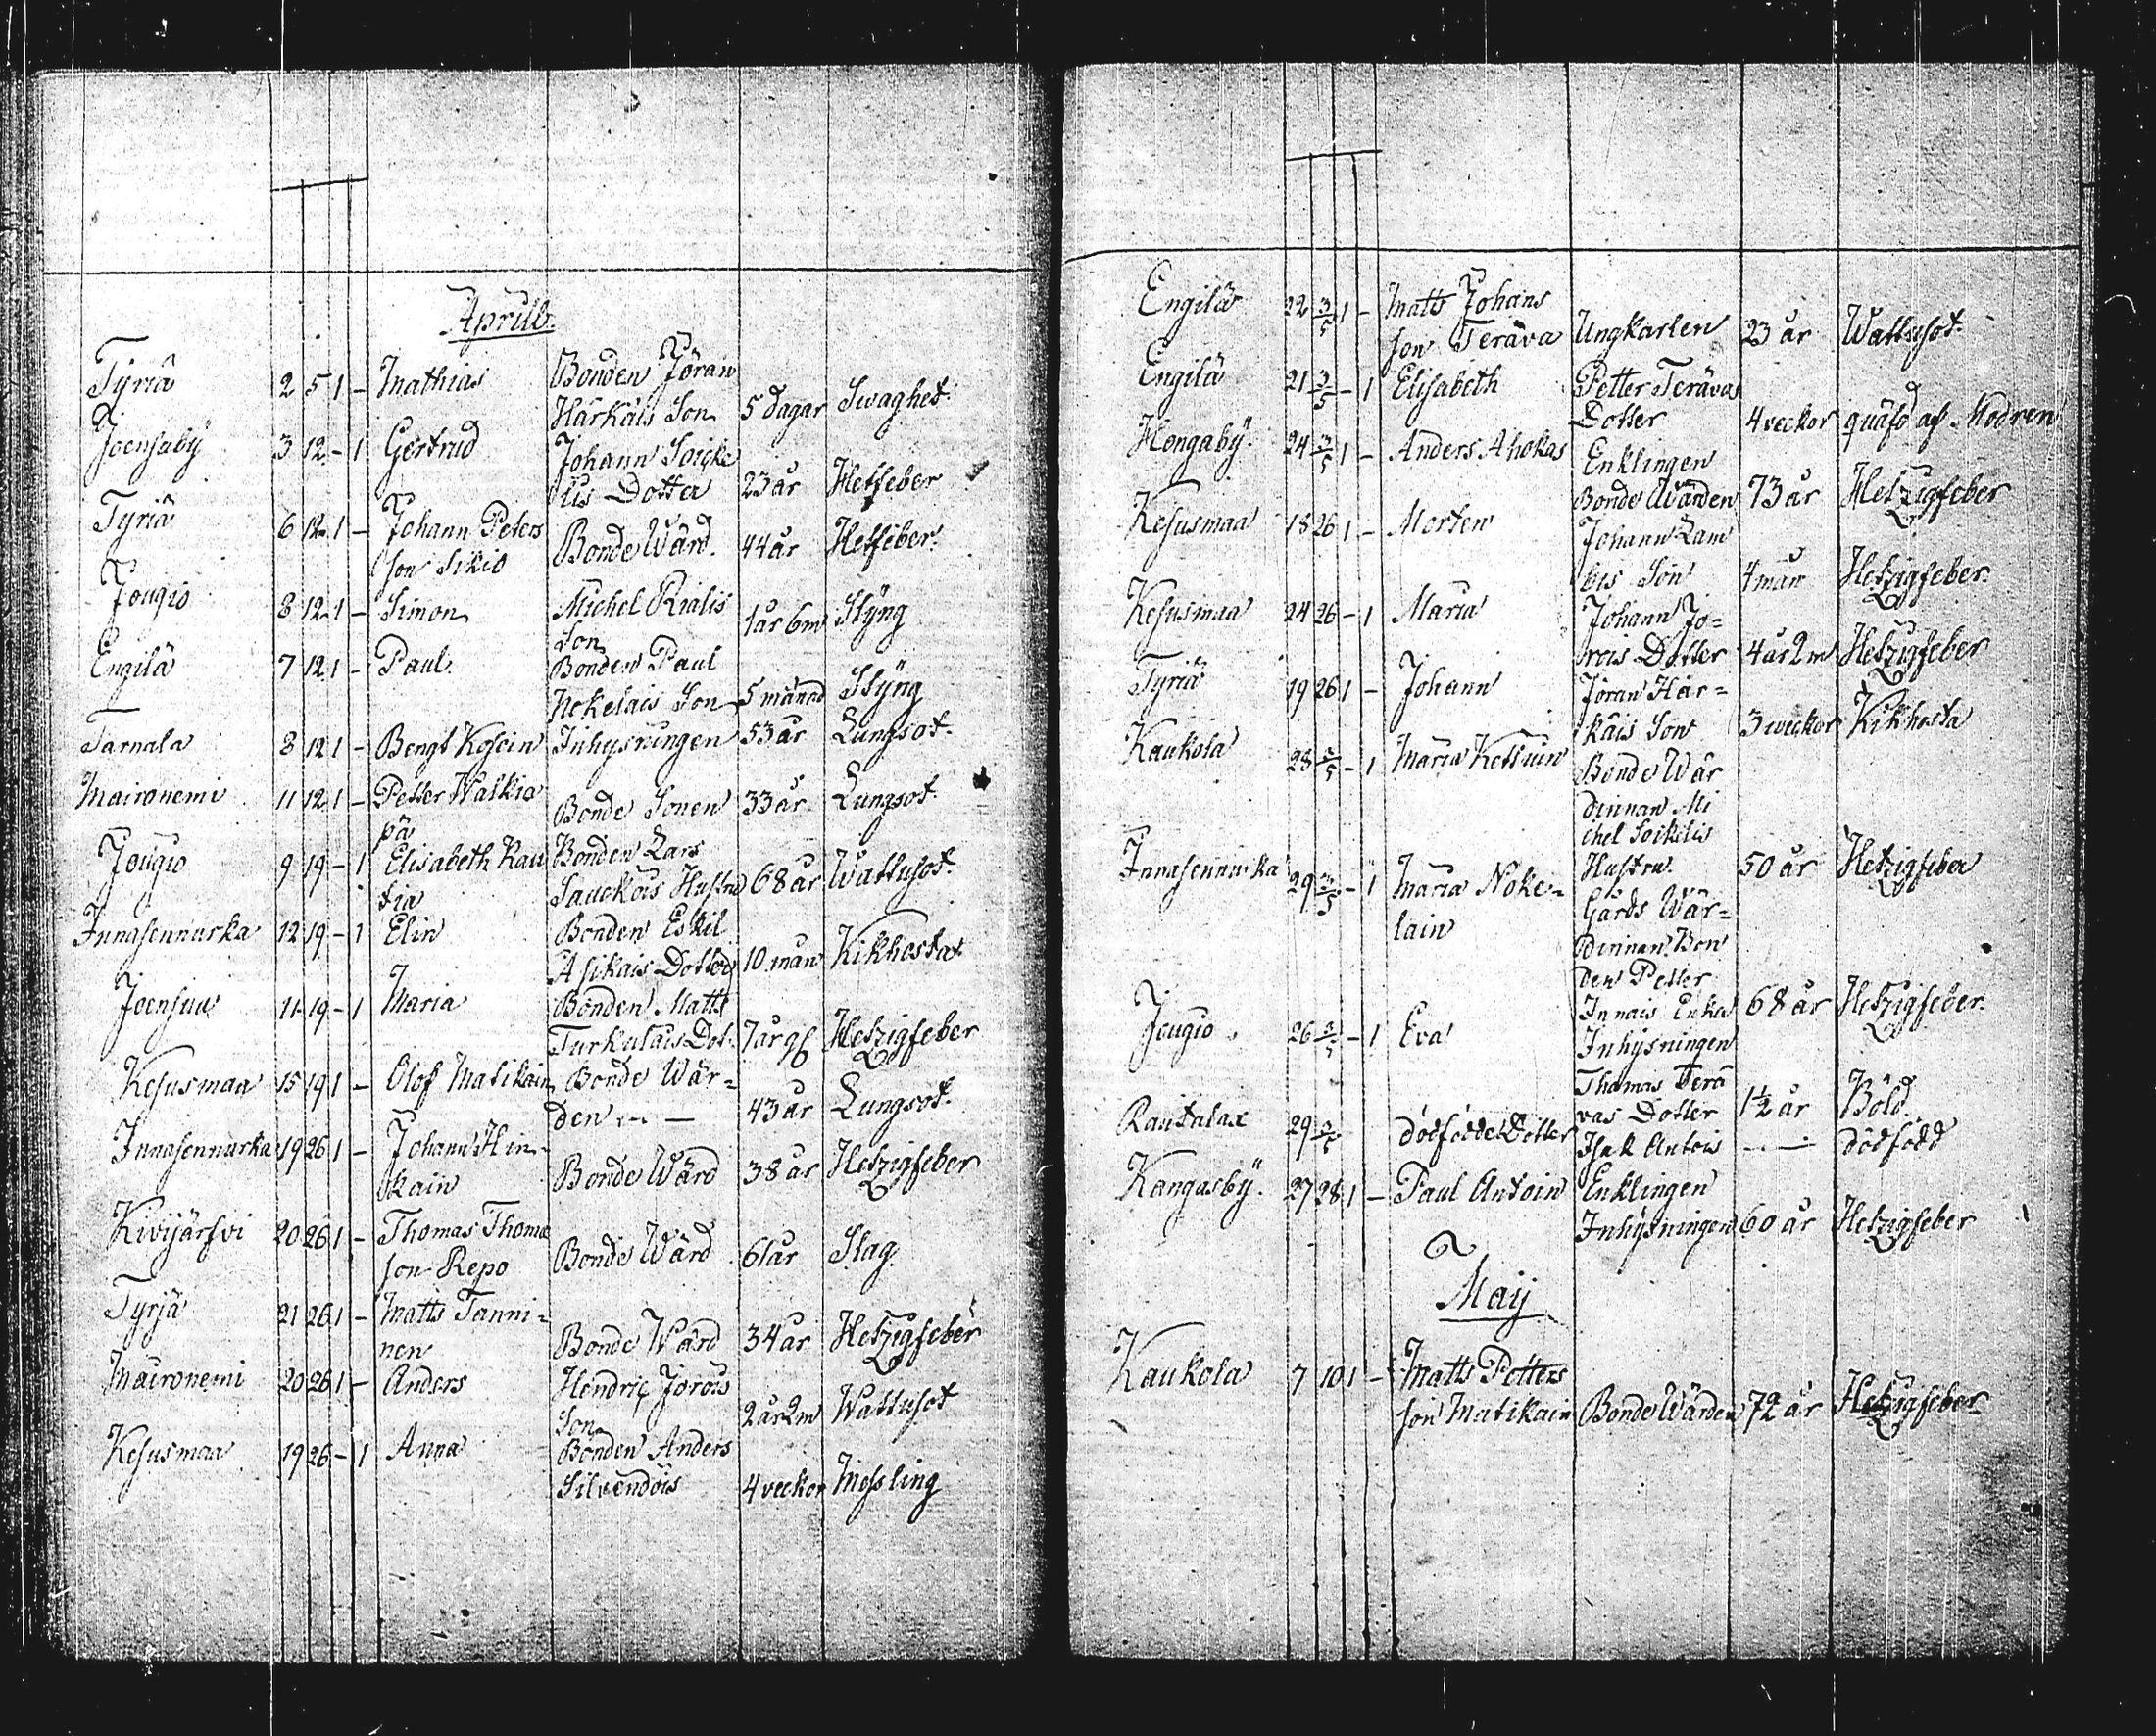 Aprill.
Tyriä 2 5 1 - Mathias Bonden Jöran
Härkäis Son 5 dagar Swaghet.
Joensaby 3 12 - 1 Gertrud Johann Soicke
lis Dotter 23 år Hetfeber
Tyriä 6 12 1 - Johann Peters Bonde Wärd. 44 år Hetfeber.
son Sikiö
Jougio 8 12 1 - Simon Michel Rialis 1 år 6 m Styng
Son
Engilä 7 12 1 - Paul Bonden Paul
Nokelais Son 5 månad Styng
Tarnala 8 12 1 - Bengt Kosoin Inhysningen 53 år Lungsot.
Maironemi 11 12 1 - Petter Walkia Bonde Sonen 33 år Lungsot.
pä
Jougio 9 19 - 1 Elisabeth Rau Bonden Lars
tia Sauckois Hustru 68 år Wattusot.
Innasennurka 12 19 - 1 Elin Bonden Eskil
Asikais Dotter 10 mån Kikhosta
Joensuu 11 19 - 1 Maria Bonden Matts
Turkulais Dot. 7 år Hetzigfeber
Kesusmaa 15 19 1 - Olof Matikain Bonde Wär=
den - - 43 år Lungsot.
Innasennurka 19 26 1 - Johann Hin-
kain Bonde Wärd 38 år Hetzigfeber
Kivijärfvi 20 26 1 - Thomas Thoma
son Repo Bonde Wärd 61 år Slag.
Tyrjä 21 26 1 - Matts Tanni=
nen Bonde Wärd 34 år Hetzigfeber
Maironemi 20 26 1 - Anders Hendric Jorois
Son 2 år 2 m Wattusot
Kesusmaa 19 26 - 1 Anna Bonden Anders
Silvendois 4 veckor Messling
Engilä 22 3/5 1 - Matts Johans
son Terava Ungkarlen 23 år Wattusot.
Engilä 21 3/5 - 1 Elisabeth Petter Terävas
Dotter 4 veckor quäfd af Modren
Hongaby. 24 3/5 1 - Anders Ahokas Enklingen
Bonde Wärden 73 år Hetzigfeber
Kesusmaa 18 26 1 - Morten Johann Lam
bis Son 4 mån Hetzigfeber.
Kesusmaa 24 26 - 1 Maria Johann Jo=
rois Dotter 4 år 2 m Hetzigfeber
Tyriä 19 26 1 - Johann Jöran Här=
käis Son 3 veckor Kikhosta
Kaukola 28 3/5 - 1 Maria Kettuin Bonde Wär
dinnan Mi
chel Soikilis
Hustru. 50 år Hetzigfeber
Innasennurka 29 3/5 - 1 Maria Noke= Gårds Wär=
lain dinnan Bon
den Petter
Innais Enka 68 år Hetzigfeber.
Jougio 26 3/5 - 1 Eva Inhysningen
Thomas Terä
vas Dotter 1½ år Böld.
Rautalax 29 3/5 dödfödde Dotter Isak Antois - - dödfödd
Kangasby. 27 28 1 - Paul Antoin Enklingen
Inhysningen 60 år Hetzigfeber
Maij
Kaukola 7 10 1 - Matts Petters
son Matikain Bonde Wärden 72 år Hetzigfeber